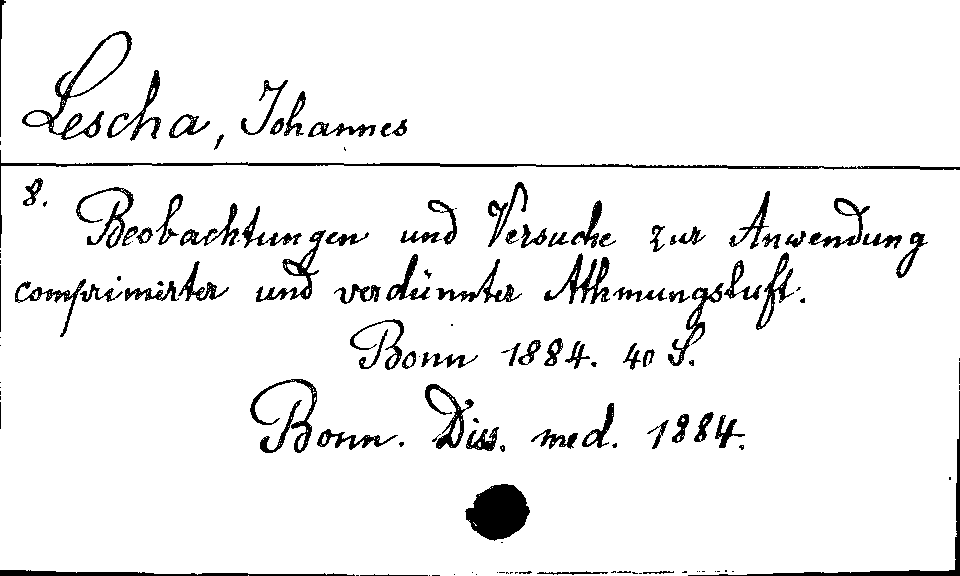 Lescha, Johannes
8.
Beobachtungen und Versuche zur Anwendung
comprimirter und verdünnter Athmungsluft.
Bonn 1884. 40 S.
Bonn. Diss. med. 1884.